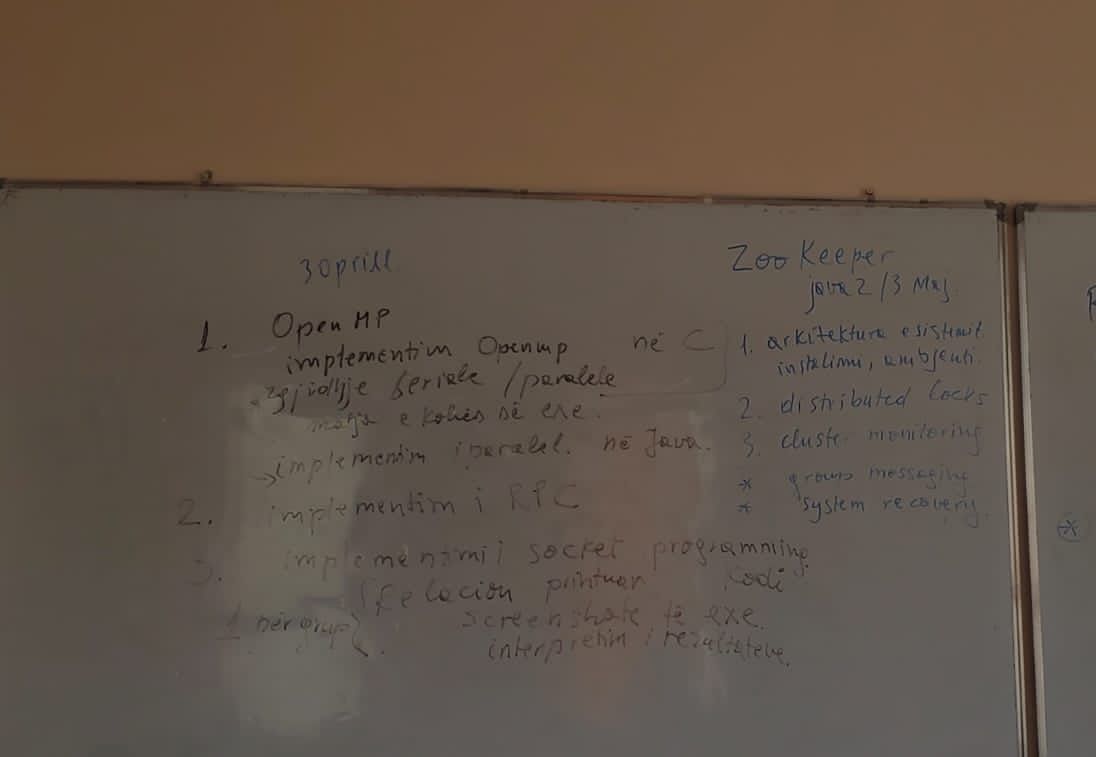 30 prill
1. OpenMP
implementim Openmp në C
zgjidhje seriale / paralele
matja e kohës së exe.
→ implementim i paralel. në Java.
2. implementim i RPC
3. implementimi i socket programming
1 për grup { Relacion printuar kodi
screenshote të exe.
interpretim i rezultateve.
ZooKeeper
java 2 / 3 Maj.
1. arkitektura e sistemit.
instalimi, ambjenti.
2. distributed locks
3. cluster monitoring
* group messaging
* system recovery.
*